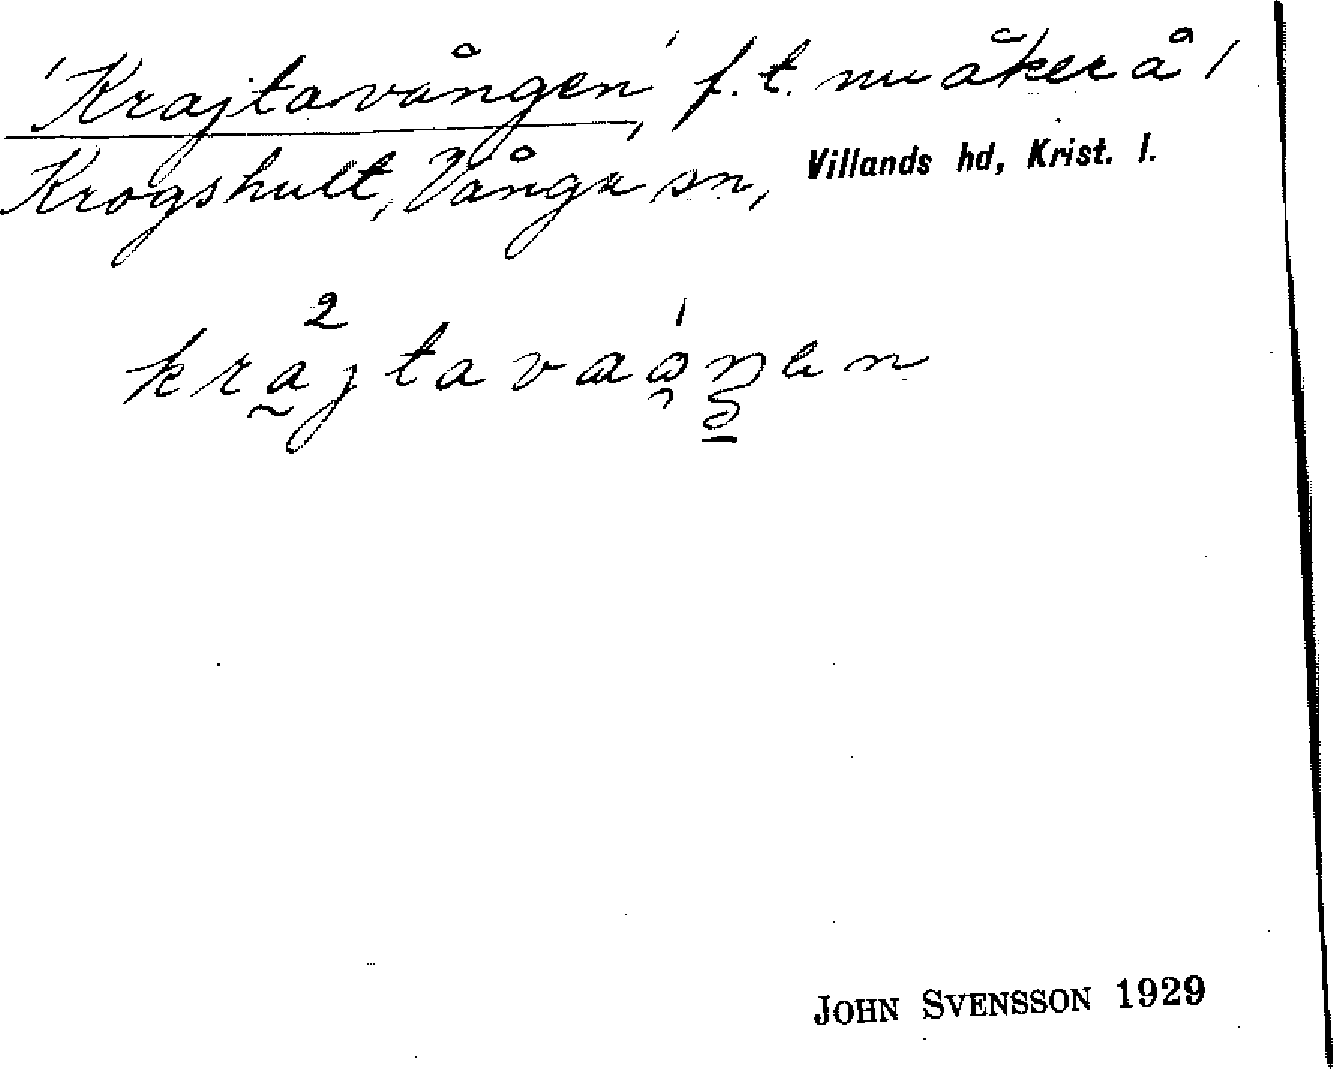 'Krajtavången', f. t. nu åker å 1
Krogshult, Vånga sn, Villands hd, Krist. l.
krajtavaåŋen
JOHN SVENSSON 1929